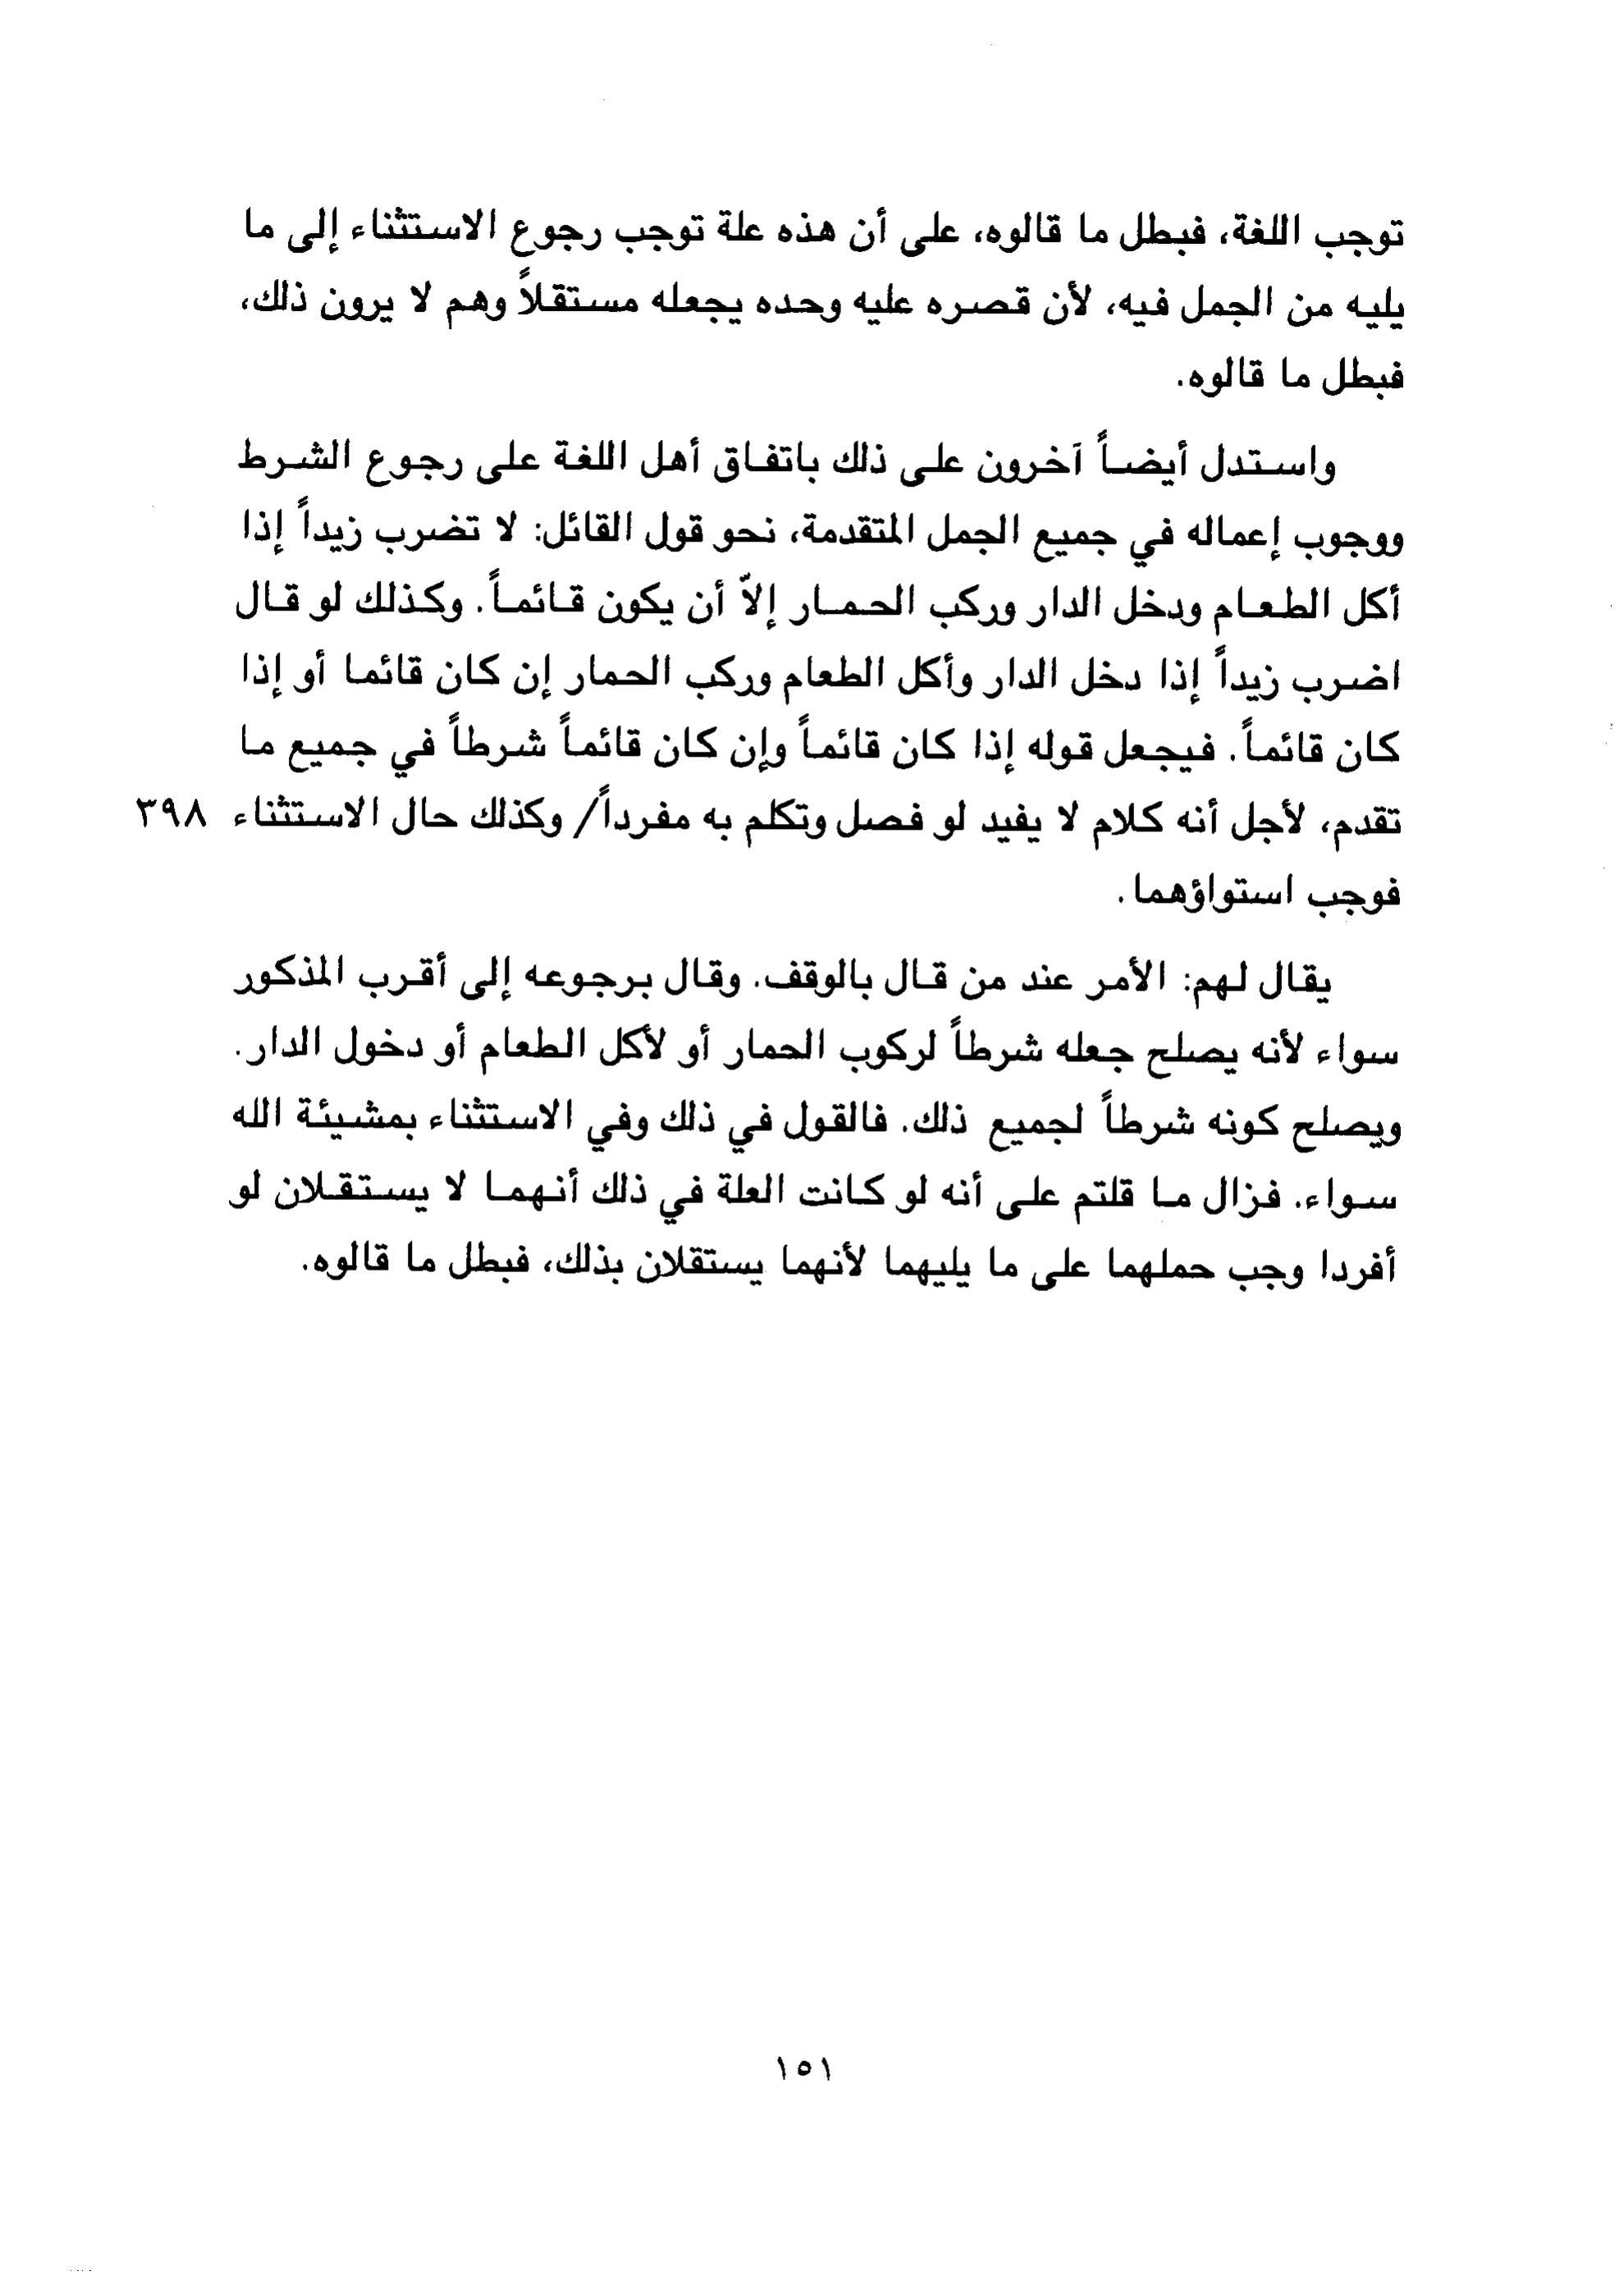 توجب اللغة، فبطل ما قالوه، على أن هذه علة توجب رجوع الاستثناء إلى ما
يليه من الجمل فيه، لأن قصره عليه وحده يجعله مستقلاً وهم لا يرون ذلك،
فبطل ما قالوه.
واستدل أيضاً آخرون على ذلك باتفاق أهل اللغة على رجوع الشرط
ووجوب إعماله في جميع الجمل المتقدمة، نحو قول القائل: لا تضرب زيداً إذا
أكل الطعام ودخل الدار وركب الحمار إلاّ أن يكون قائماً. وكذلك لو قال
اضرب زيداً إذا دخل الدار وأكل الطعام وركب الحمار إن كان قائما أو إذا
كان قائماً. فيجعل قوله إذا كان قائماً وإن كان قائماً شرطاً في جميع ما
تقدم، لأجل أنه كلام لا يفيد لو فصل وتكلم به مفرداً/ وكذلك حال الاستثناء ٣٩٨
فوجب استواؤهما.
يقال لهم: الأمر عند من قال بالوقف. وقال برجوعه إلى أقرب المذكور
سواء لأنه يصلح جعله شرطاً لركوب الحمار أو لأكل الطعام أو دخول الدار.
ويصلح كونه شرطاً لجميع ذلك. فالقول في ذلك وفي الاستثناء بمشيئة الله
سواء. فزال ما قلتم على أنه لو كانت العلة في ذلك أنهما لا يستقلان لو
أفردا وجب حملهما على ما يليهما لأنهما يستقلان بذلك، فبطل ما قالوه.
١٥١